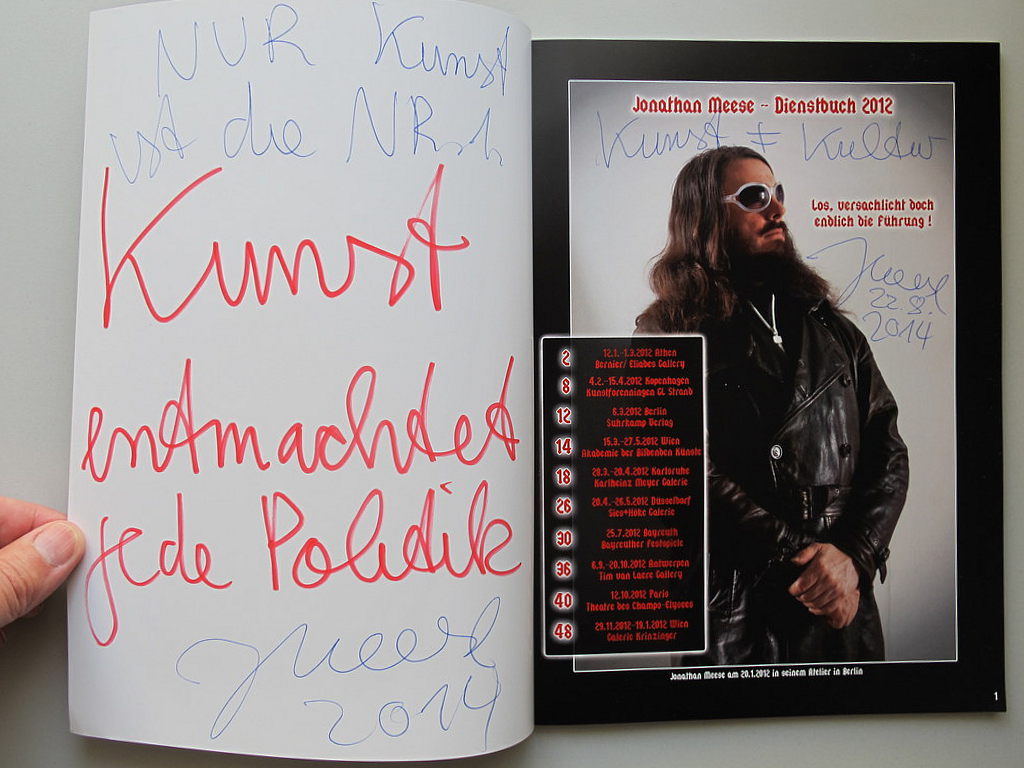 NUR Kunst
ist die NR.1.
Kunst
entmachtet
jede Politik
Meese
2014
Jonathan Meese -- Dienstbuch 2012
Kunst ≠ Kultur
Los, versachlicht doch
endlich die Führung !
Meese
22.8.
2014
2 12.1.-1.3.2012 Athen
Bernier/ Eliades Gallery
8 4.2.-15.4.2012 Kopenhagen
Kunstforeningen GL Strand
12 6.3.2012 Berlin
Suhrkamp Verlag
14 15.3.-27.5.2012 Wien
Akademie der Bildenden Künste
18 28.3.-20.4.2012 Karlsruhe
Karlheinz Meyer Galerie
26 20.4.-26.5.2012 Düsseldorf
Sies+Höke Galerie
30 25.7.2012 Bayreuth
Bayreuther Festspiele
36 6.9.-20.10.2012 Antwerpen
Tim van Laere Gallery
40 12.10.2012 Paris
Theatre des Champs-Elysees
48 29.11.2012-19.1.2012 Wien
Galerie Krinzinger
Jonathan Meese am 20.1.2012 in seinem Atelier in Berlin
1